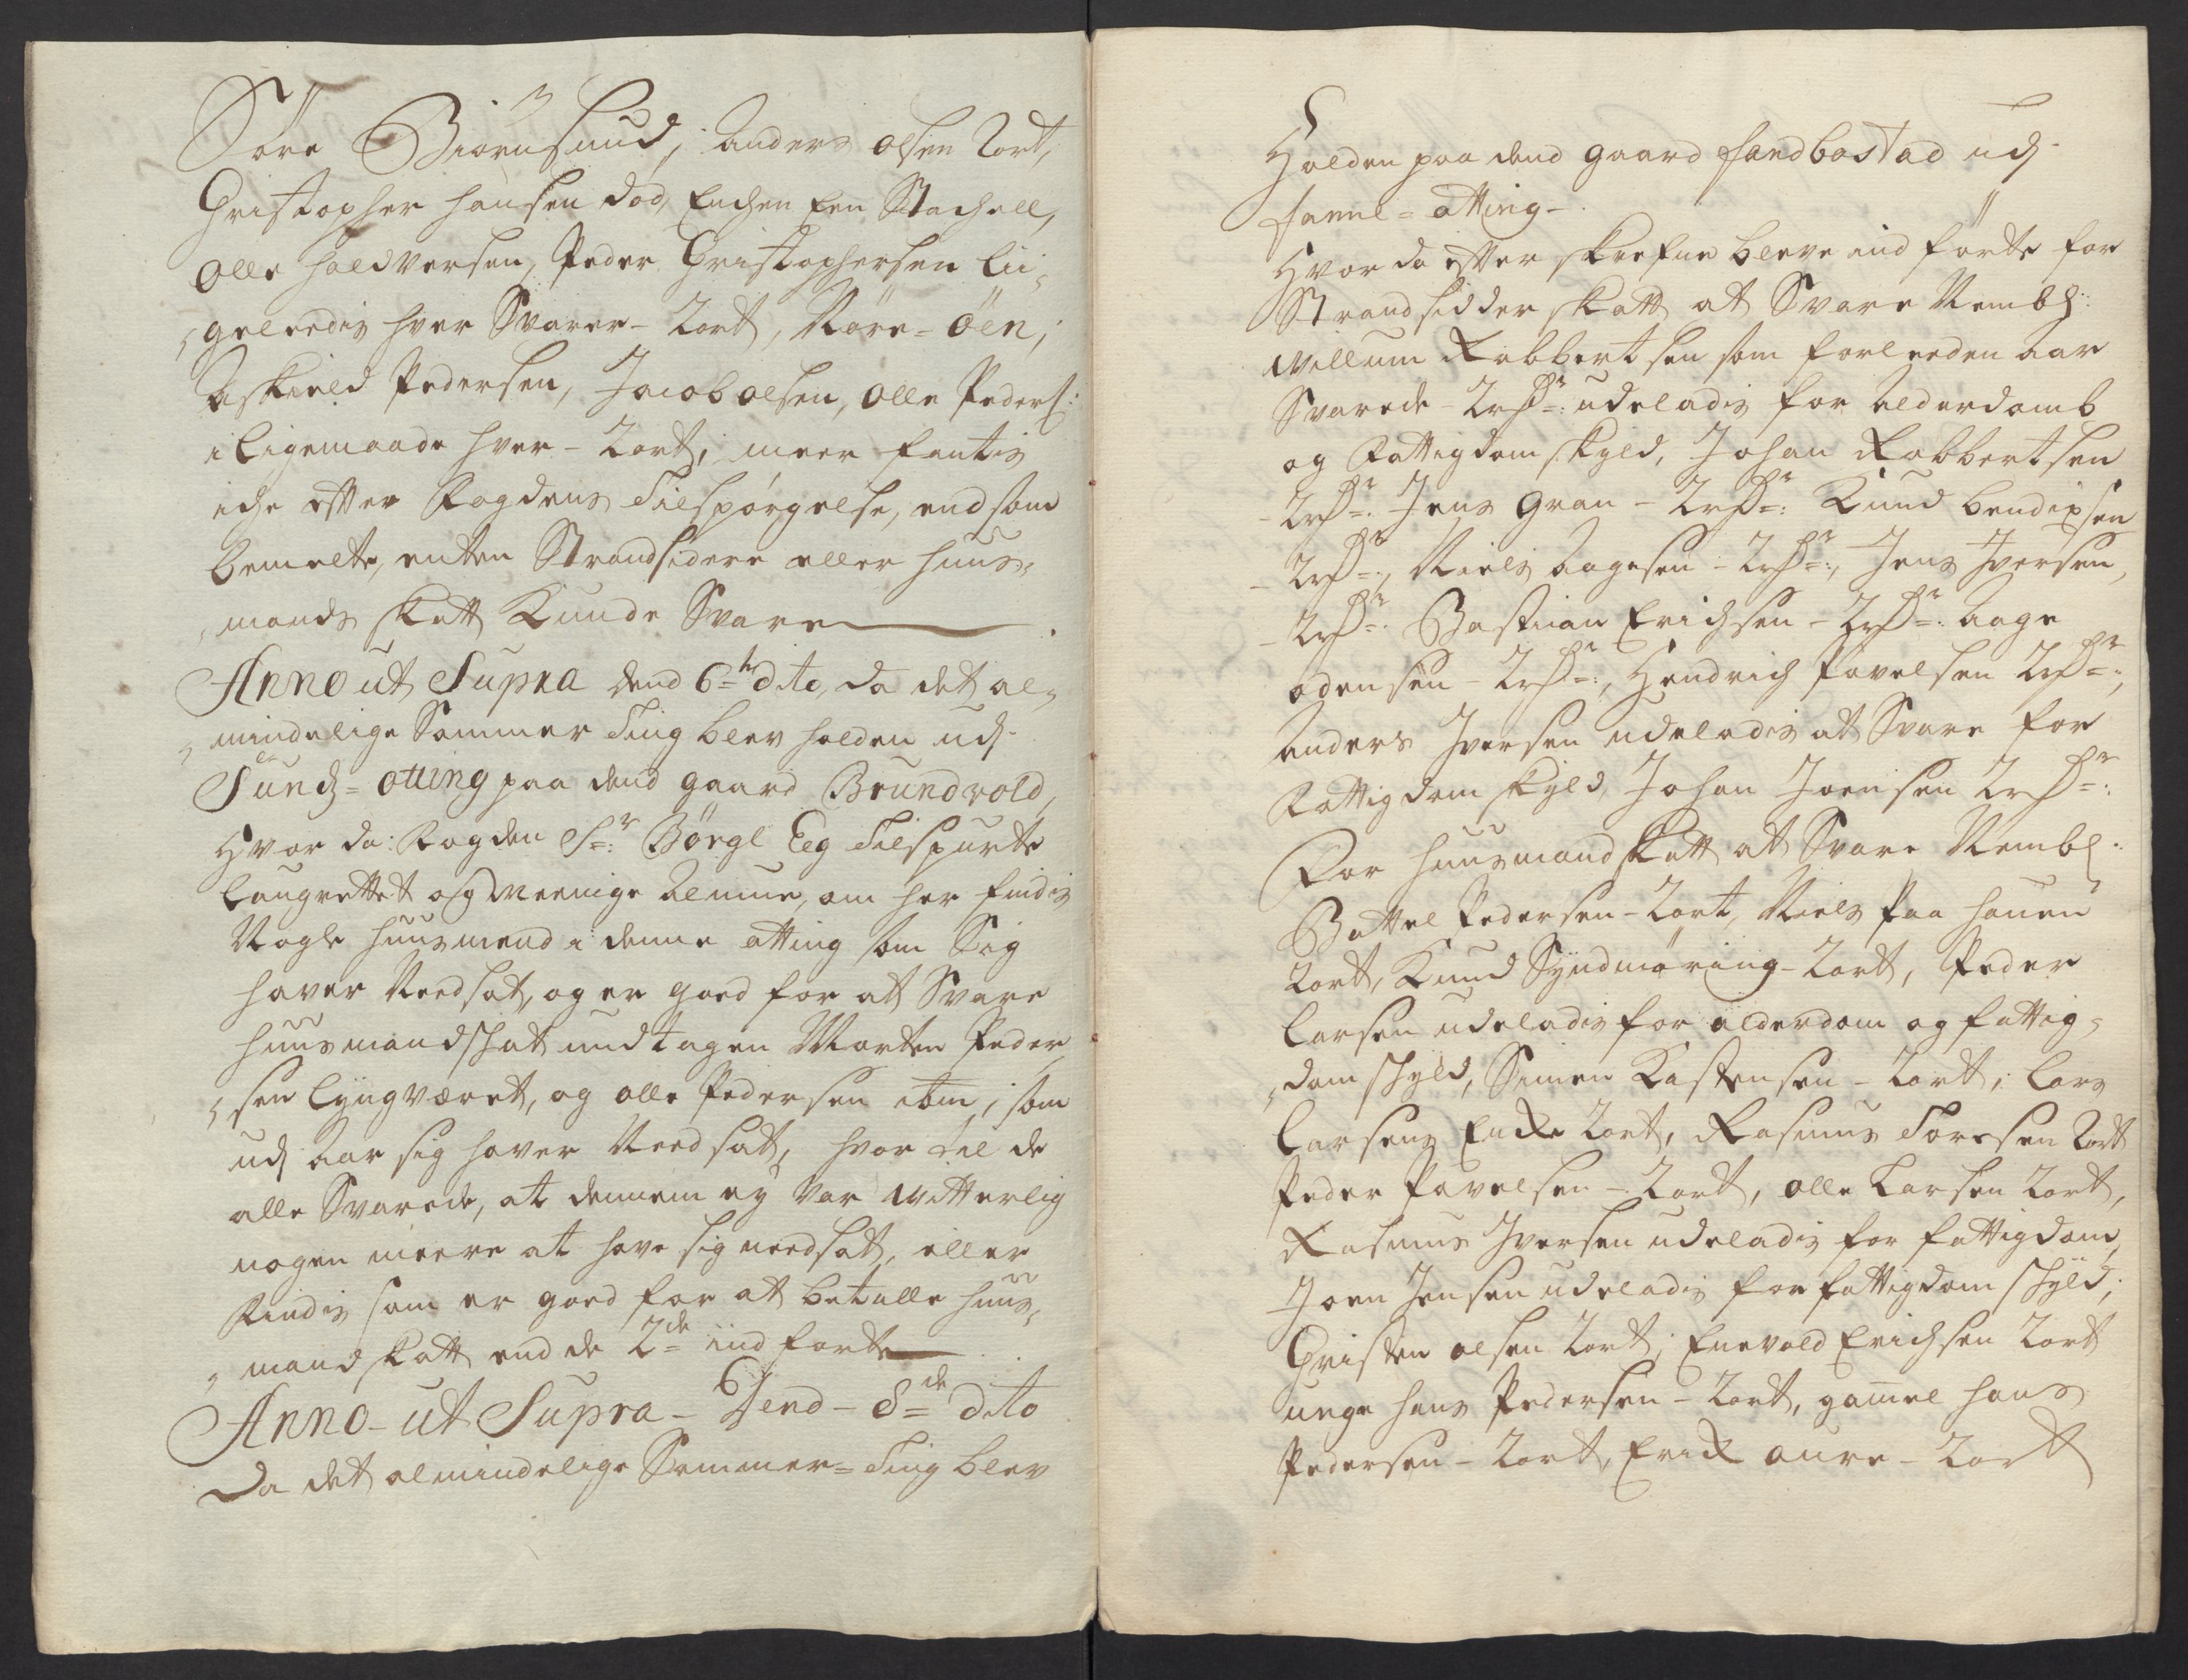 Søre Biørnsund, Anders olsen 2ort,
Christopher hansen død, Enchen Een Stachell,
Olle Haldversen, Peder Christophersen lii-
geleedis hver Svarer - 2ort, Nøre = Øen,
Askield Pedersen, Jacob olsen, Olle Peders:
i ligemaade hver - 2ort, meer fantis
iche efter Fogdens Tilspørgelse, end som
bemelte, enten Strandsidere eller huus-
mands skatt Kunde Svare
Anno ut Supra dend 6te dito, da det al-
mindelige Sommer Ting blev holden udj
Sunds = otting paa dend gaard Brundvold,
Hvor da Fogden Sr: Børgl Eeg Tilspurte
laugrettet og Meenige Almue, om her findis
Nogle huusmend i denne otting som Sig
haver Needsat, og er goed for at Svare
huusmandskat undtagen Morten Peder
sen Lyngværet, og olle Pedersen ibm, som
udj Aar sig haver Needsat, hvor til de
alle Svarede, at dennem ey var Witterlig
nogen meere at have sig needsat, eller
findis som er goed for at betalle huus-
mand skatt end de 2de ind førte
Anno - ut Supra - Dend - 8de dito
Da det almindelige Sommer = Ting blev
Holden paa dend gaard Sandbostad udj
fanne = otting -
Hvor da efter skrefne bleve ind førte for
Strandsidder skatt at Svare Nembl:
Willum Robbertsen som forleeden Aar
Svarede - 2rdr: udeladis for Alderdomb
og Fattigdom skyld, Johan Robbertsen
- 2rdr: Jens Gran - 2rdr: Knud bendixsen
- 2rdr:, Niels Aagesen - 2rdr:, Jens Iversen
- 2rdr: Bastiian Erichsen - 2rdr: Aage
odensen - 2rdr:, Hendrich Povelsen 2rdr:,
Anders Iversen udeladis at Svare for
Fattigdom skyld, Johan Joensen 2rdr:
For huusmand skatt at Svare Nembl:
Battel Pedersen - 2ort, Niels Paa hauen
2ort, Knud Syndmøring - 2ort, Peder
Larsen udeladis for alderdom og fattig-
dom skyld, Simen Kastensen - 2ort, Lars
Larsens Encke 2ort, Rasmus Toresen 2ort
Peder Povelsen - 2ort, olle Larsen 2ort,
Rasmus Iversen udeladis for fattigdom,
Joen Jensen udeladis for fattigdom skyld,
Christen olsen 2ort, Enevold Erichsen 2ort
unge hans Pedersen - 2ort, gamel hans
Pedersen - 2ort, Erick aure - 2ort